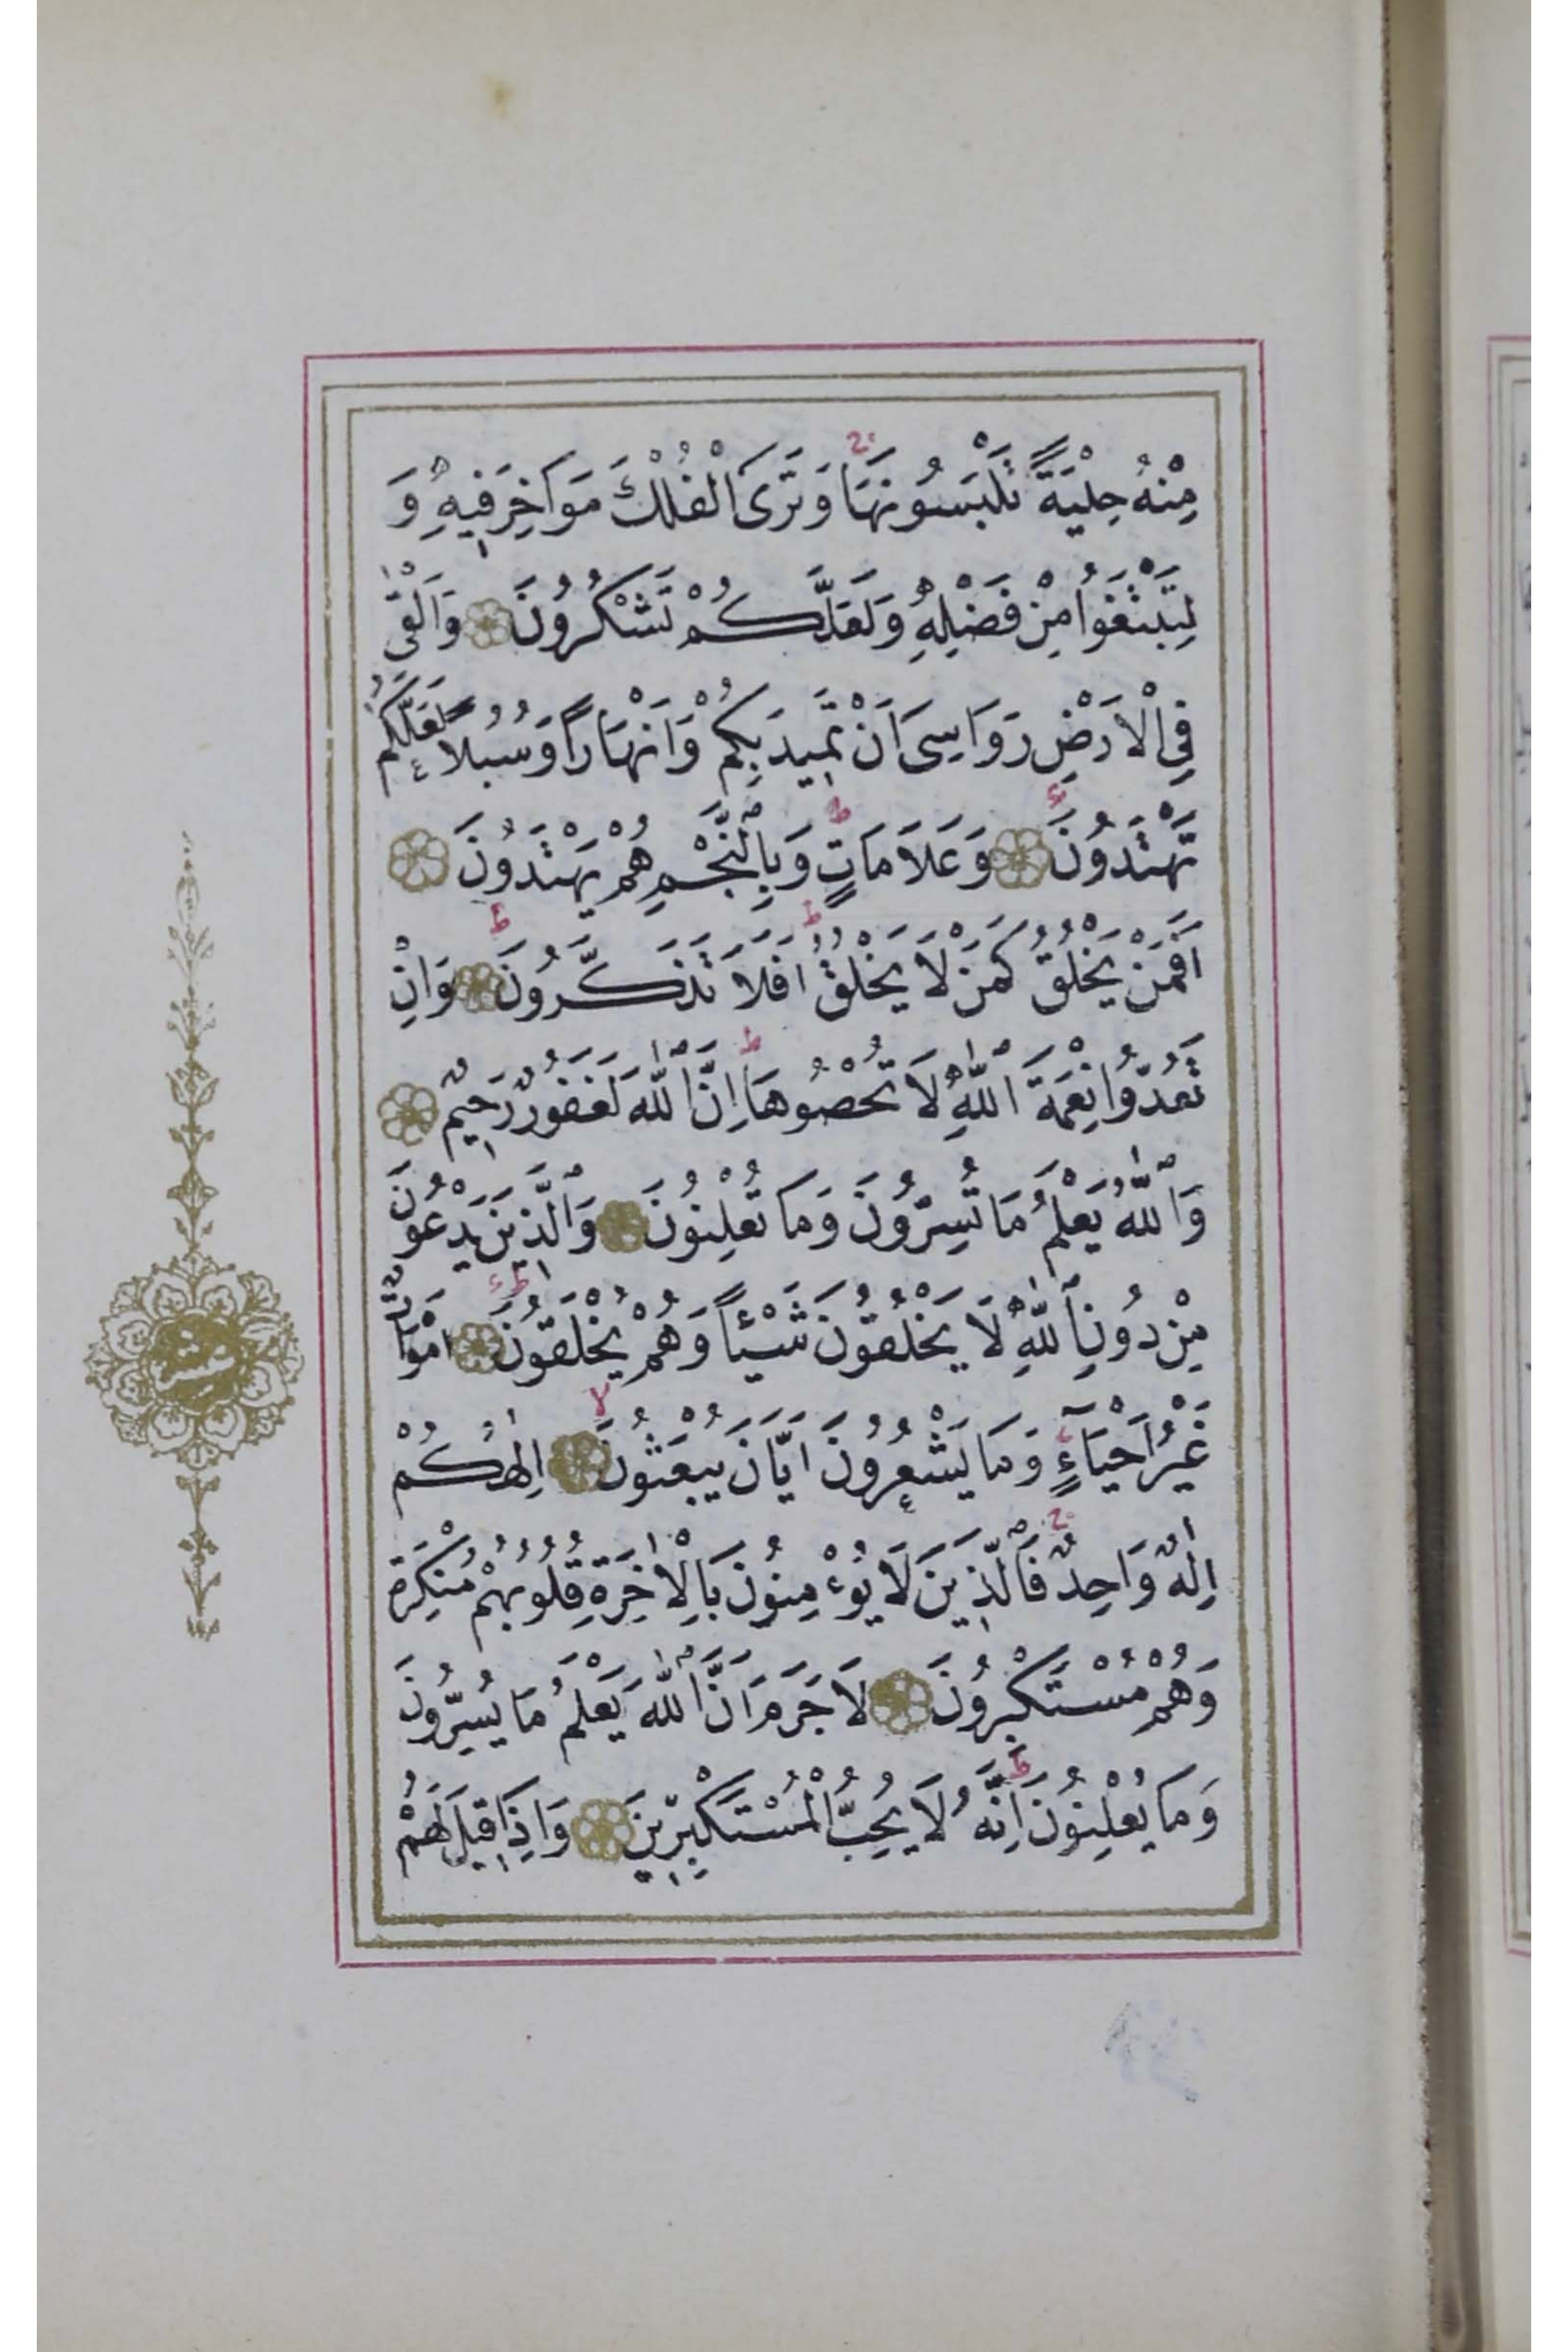 مِنْهُ حِلْيَةً تَلْبَسُونَهَا وَتَرَى الْفُلْكَ مَوَاخِرَ فِيهِ وَ
لِتَبْتَغُوا مِنْ فَضْلِهِ وَلَعَلَّكُمْ تَشْكُرُونَ وَاَلْقٰى
فِي الْاَرْضِ رَوَاسِىَ اَنْ تَمِيدَ بِكُمْ وَاَنْهَارًا وَسُبُلًا لَعَلَّكُمْ
تَهْتَدُونَ وَعَلَامَاتٍ وَبِالنَّجْمِ هُمْ يَهْتَدُونَ
اَفَمَنْ يَخْلُقُ كَمَنْ لَا يَخْلُقُ اَفَلَا تَذَكَّرُونَ وَاِنْ
تَعُدُّوا نِعْمَةَ اللّٰهِ لَا تُحْصُوهَا اِنَّ اللّٰهَ لَغَفُورٌ رَحِيمٌ
وَاللّٰهُ يَعْلَمُ مَا تُسِرُّونَ وَمَا تُعْلِنُونَ وَالَّذِينَ يَدْعُونَ
مِنْ دُونِ اللّٰهِ لَا يَخْلُقُونَ شَيْئًا وَهُمْ يُخْلَقُونَ اَمْوَاتٌ
غَيْرُ اَحْيَآءٍ وَمَا يَشْعُرُونَ اَيَّانَ يُبْعَثُونَ اِلٰهُكُمْ
اِلٰهٌ وَاحِدٌ فَالَّذِينَ لَا يُؤْمِنُونَ بِالْاٰخِرَةِ قُلُوبُهُمْ مُنْكِرَةٌ
وَهُمْ مُسْتَكْبِرُونَ لَا جَرَمَ اَنَّ اللّٰهَ يَعْلَمُ مَا يُسِرُّونَ
وَمَا يُعْلِنُونَ اِنَّهُ لَا يُحِبُّ الْمُسْتَكْبِرِينَ وَاِذَا قِيلَ لَهُمْ